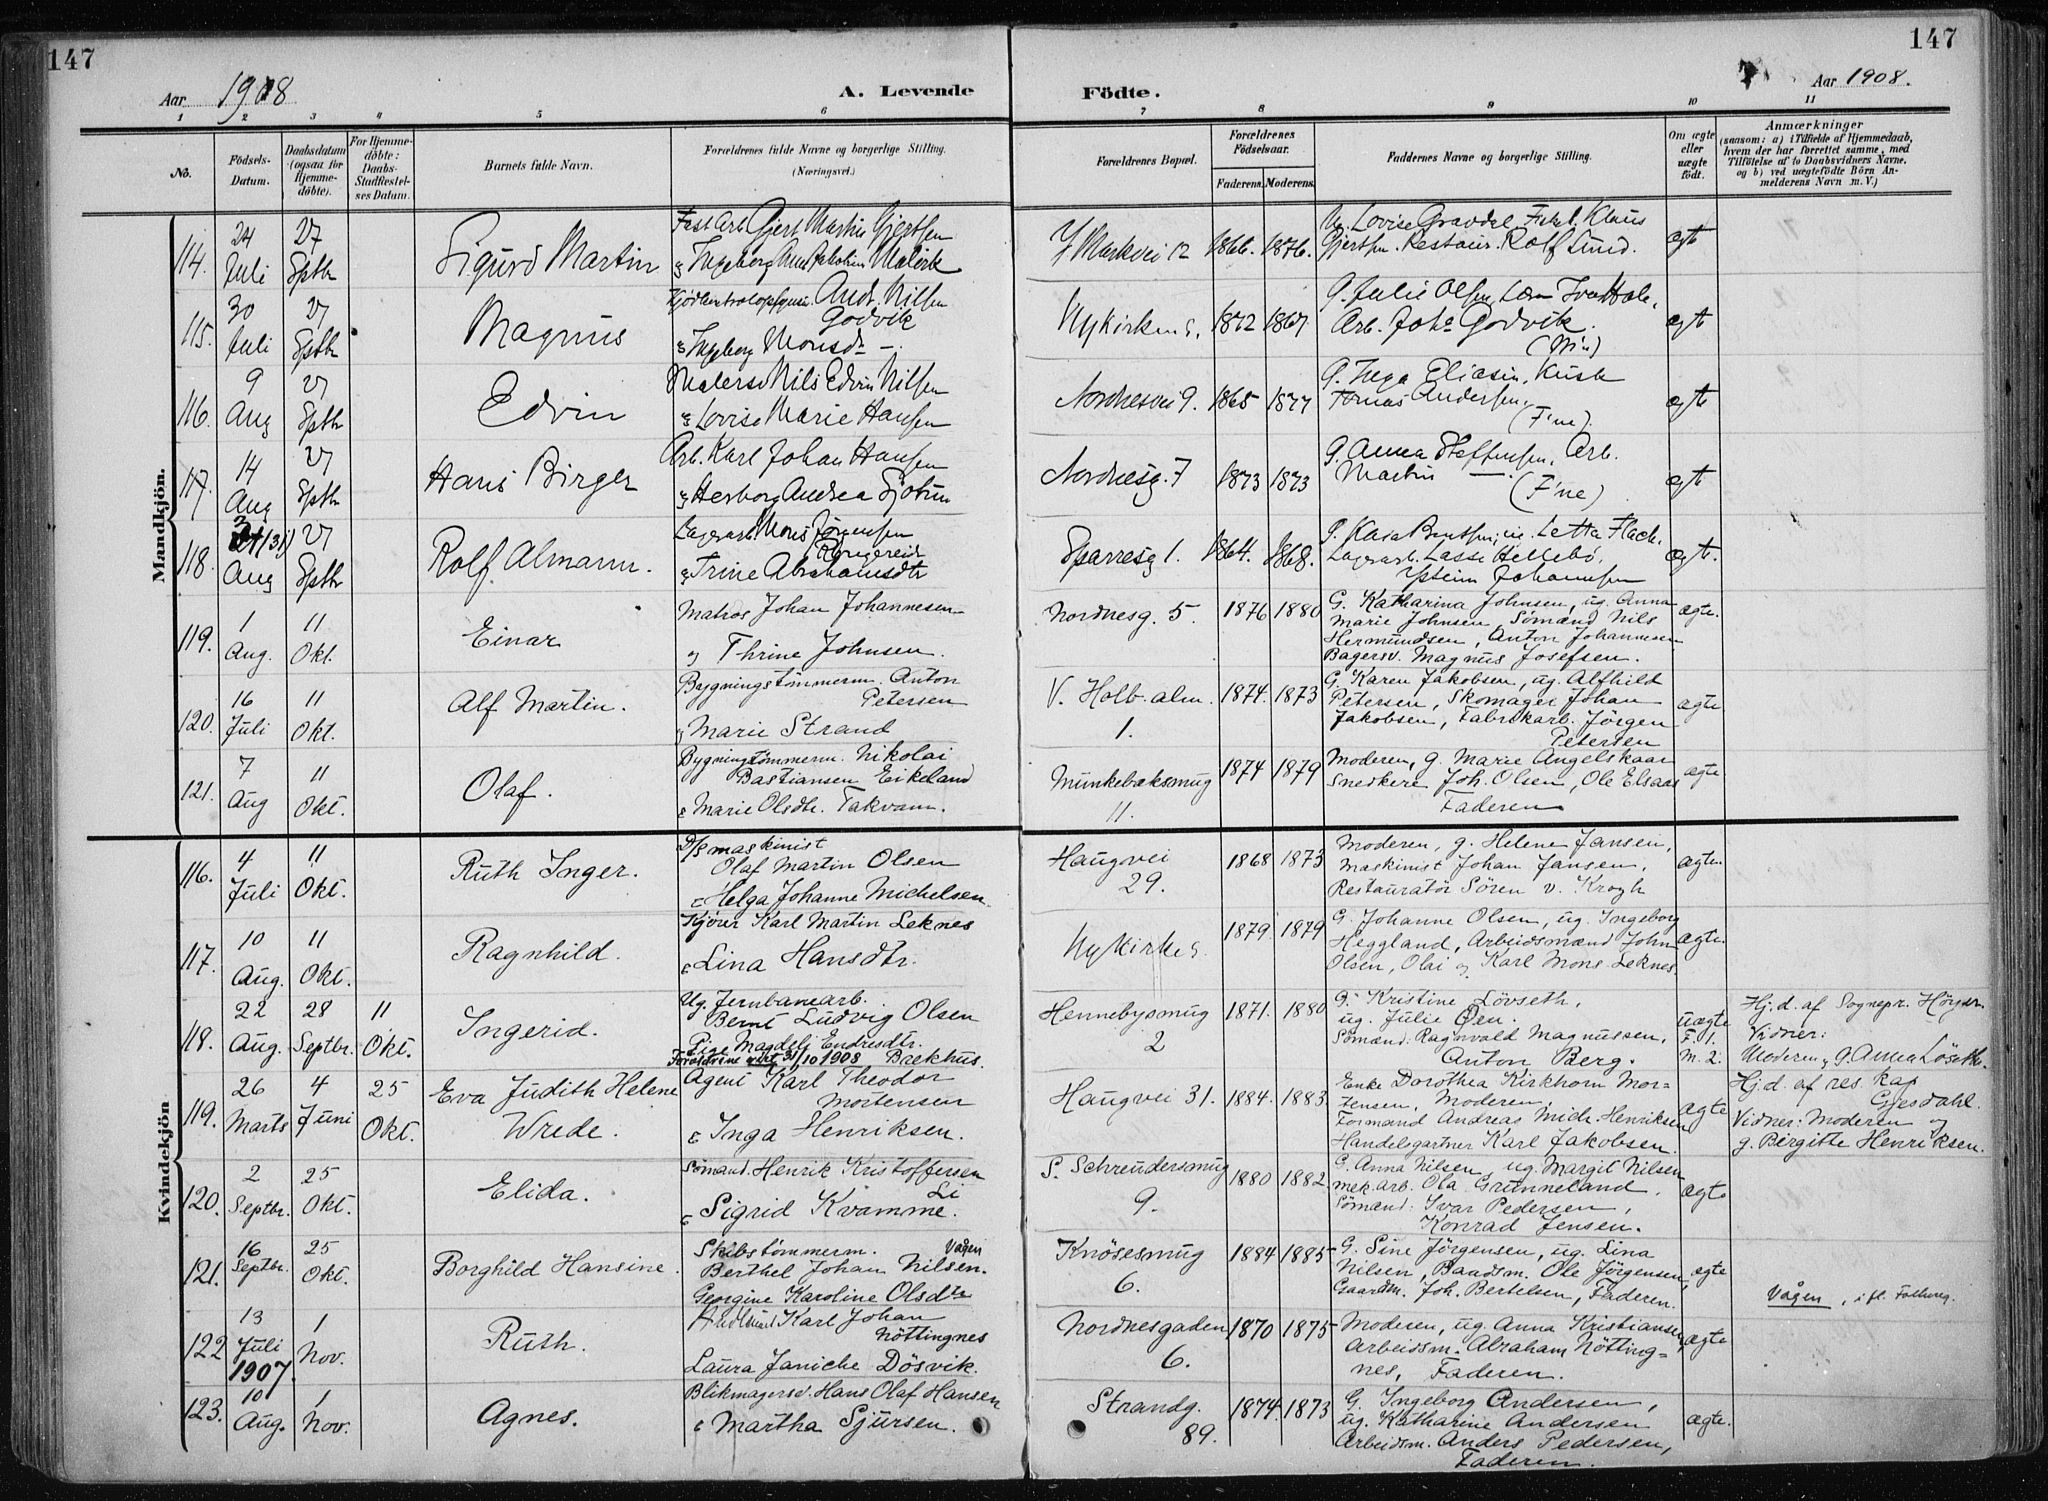 147
147
Aar 1908
A. Levende
Födte.
Aar 1908.
1 2 3 4 5 6 7 8 9 10 11
No.
Födsels-Datum.
Daabsdatum (ogsaa för Hjemmedöbte).
For Hjemmedöbte: Daabs-Stadfæstelses Datum.
Barnets fulde Navn.
Forældrenes fulde Navne og borgerlige Stilling.
(Næringsvei.)
Forældrenes Bopæl.
Forældrenes Födselsaar.
Faderens. Moderens.
Faddernes Navne og borgerlige Stilling.
Om ægte eller uægte födt.
Anmærkninger
(saasom: a) i Tilfælde af Hjemmedaab, hvem der har forrettet samme, med Tilföielse af to Daabsvidners Navne, og b) ved uægtefödte Börn Anmelderens Navn m. V.)
Mandkjön.
114. 24 Juli 27 Sptbr Sigurd Martin
Gjert Martin Gjertsen
Y Markvei 12 1866. 1876.
Ug. Lovise Gravdal Klaus
Gjertsen. Restaur. Rolf Lund. ægt
115. 30 Juli 27 Sptbr Magnus
Andr. Nilsen
Godvik
Ingeborg Monsdr —.
Nykirkeg. 1872 1867.
G. Julie Olsen,
Arb. Johs Godvik. ægt
116. 9 Aug 27 Sptbr Edvin
Malersv Nils Edvin Nilsen
& Lovise Marie Hansen
Nordnesvei 9. 1865 1877
G. Inga Eliasen, Kusk
Tomas Andersen,
(F'ne) ægte
117. 14 Aug 27 Sptbr Hans Birger
Arb. Karl Johan Hansen
& Herborg Andrea
Nordnesg. 7 1873 1873
G. Anna Steffensen, Arb.
Martin — .
(F'ne) ægt
118. Aug 27 Sptbr Rolf Almann.
Lagerarb Mons Jörgensen
& Trine Abrahamsdtr
Sparresg 1. 1864. 1868.
Letta Flach.
Lagerarb. Lasse Hellebö,
Johannesen ægt.
119. 1 Aug. 11 Okt. Einar
Matros Johan Johannesen
og Thrine Johnsen.
Nordnesg. 5. 1876 1880
G. Katharina Johnsen, ug. Anna
Marie Johnsen, Sömænd Nils
Hermundsen, Anton Johannesen
Bagersv. Magnus Josefsen. ægte.
120. 16 Juli 11 Okt. Alf Martin.
Bygningstömmerm. Anton
Petersen
og Marie Strand
V. Holb. alm. 1. 1874. 1873
G. Karen Jakobsen, ug. Alfhild
Petersen, Skomager Johan
Jakobsen, Fabrikarb. Jörgen
Petersen ægte
121. 7 Aug 11 Okt. Olaf.
Bygningstömmerm. Nikolai
Bastiansen Eikeland
& Marie Olsdtr. Takvam.
Munkebæksmug 11. 1874 1879
Moderen, g. Marie Angelskaar
Snedkere Joh. Olsen, Ole Elsaas
Faderen ægte
Kvindekjön
116. 4 Juli 11 Okt. Ruth Inger.
D/s maskinist
Olaf Martin Olsen
& Helga Johanne Michelsen.
Haugvei 29. 1868 1873
Moderen, g. Helene Jansen,
Maskinist Johan Jansen,
Restauratör Sören v. Krogh ægte.
117. 10 Aug. 11 Okt. Ragnhild.
Kjörer Karl Martin Leknes
& Lina Hansdtr.
Nykirkeg. 1879. 1879
G. Johanne Olsen, ug. Ingeborg
Heggland, Arbeidsmænd John
Olsen, Olai og Karl Mons. Leknes ægte.
118. 22 Aug. 28 Septbr. 11 Okt. Ingerid.
Ug. Jernbanearb.
Bernt Ludvig Olsen
Pige Magdeli Endresdtr.
Forældrene viet 31/10 1908 Baekhus.
Hennebysmug 2 1871. 1880
G. Kristine Lövseth,
ug. Julie Öen.
Sömænd. Ragnvald Magnussen,
Anton Berg. uægte F. 1. M. 2.
Hj.d. af Sognepr.
Vidner:
Moderen, g. Anna
119. 26 Marts 4 Juni 25 Okt. Eva Judith Helene
Wrede.
Agent Karl Theodor
Mortensen
& Inga Henriksen.
Haugvei 31. 1884. 1883.
Enke Dorothea Kirkhorn Mor=
tensen, Moderen,
Formand Andreas Mich. Henriksen
Handelsgartner Karl Jakobsen. ægte
Hj.d. af res. kap
Gjesdahl.
Vidner: Moderen og
g. Birgitte Henriksen.
120. 2 Septbr. 25 Okt. Elida.
Sömand. Henrik Kristoffersen
Li
& Sigrid Kvamme.
S. Schreudersmug 9. 1880 1882.
G. Anna Nilsen, ug. Margit Nilsen
mek.arb. Ola Grunneland,
Sömænd: Ivar Pedersen,
Konrad Jensen. ægte
121. 16 Septbr. 25 Okt. Borghild Hansine.
Skibstömmerm. Vågen
Berthel Johan Nilsen.
Georgine Karoline Olsdtr
Knösesmug 6. 1884 1885
G. Sine Jörgensen, ug. Lina
Nilsen, Baadsm. Ole Jörgensen,
Gaardm. Joh. Bertelsen, Faderen. ægte
Vågen, ifl.
122 13 Juli 1907. 1 Nov. Ruth.
Karl Johan
Nöttingnes
Laura Janiche Dösvik.
Nordnesgaden 6. 1870 1875
Moderen, ug. Anna Kristiansen
Arbeidsm. Abraham Nötting=
nes, Faderen. ægte
123. 10 Aug. 1 Nov. Agnes.
Blikmagersv. Hans Olaf Hansen
& Martha Sjursen.
Strandg. 89. 1874. 1873
G. Ingeborg Andersen,
ug. Katharine Andersen
Arbeidsm. Anders Pedersen,
Faderen. ægte.